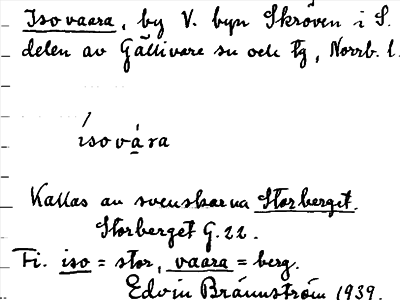 Isovaara, by V. byn Skröven i S.
delen av Gällivare sn och tg, Norrb. l.
ísovára
Kallas av svenskarna Storberget.
Storberget G. 22.
Fi. iso = stor, vaara = berg.
Edvin Brännström 1939.